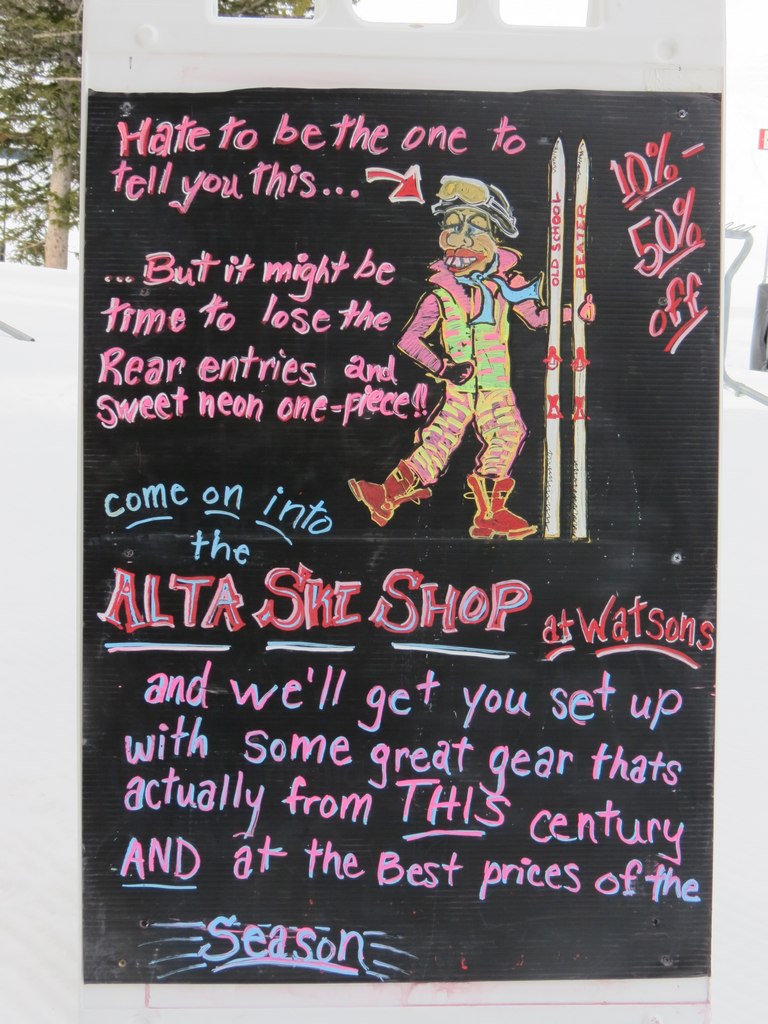 Hate to be the one to
tell you this...
10%-
50%
off
OLD SCHOOL
BEATER
...But it might be
time to lose the
Rear entries and
sweet neon one-piece!!
come on into
the
ALTA SKI SHOP
at Watsons
and we'll get you set up
with some great gear thats
actually from THIS century
AND at the Best prices of the
Season